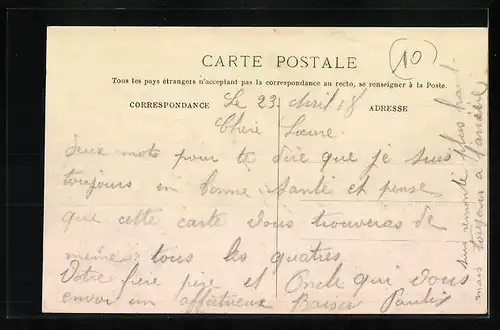 10
CARTE POSTALE
Tous les pays étrangers n'acceptant pas la correspondance au recto, se renseigner à la Poste.
CORRESPONDANCE
ADRESSE
Le 23 Avril 18
Chère Sœure.
Deux mots pour te dire que je suis
toujours en bonne santé et pense
que cette carte vous trouveras de
même tous les quatres
Votre frère et Oncle qui vous
envoi un affectueux Baiser
suis remonté plus haut
mais toujours à l'arrière